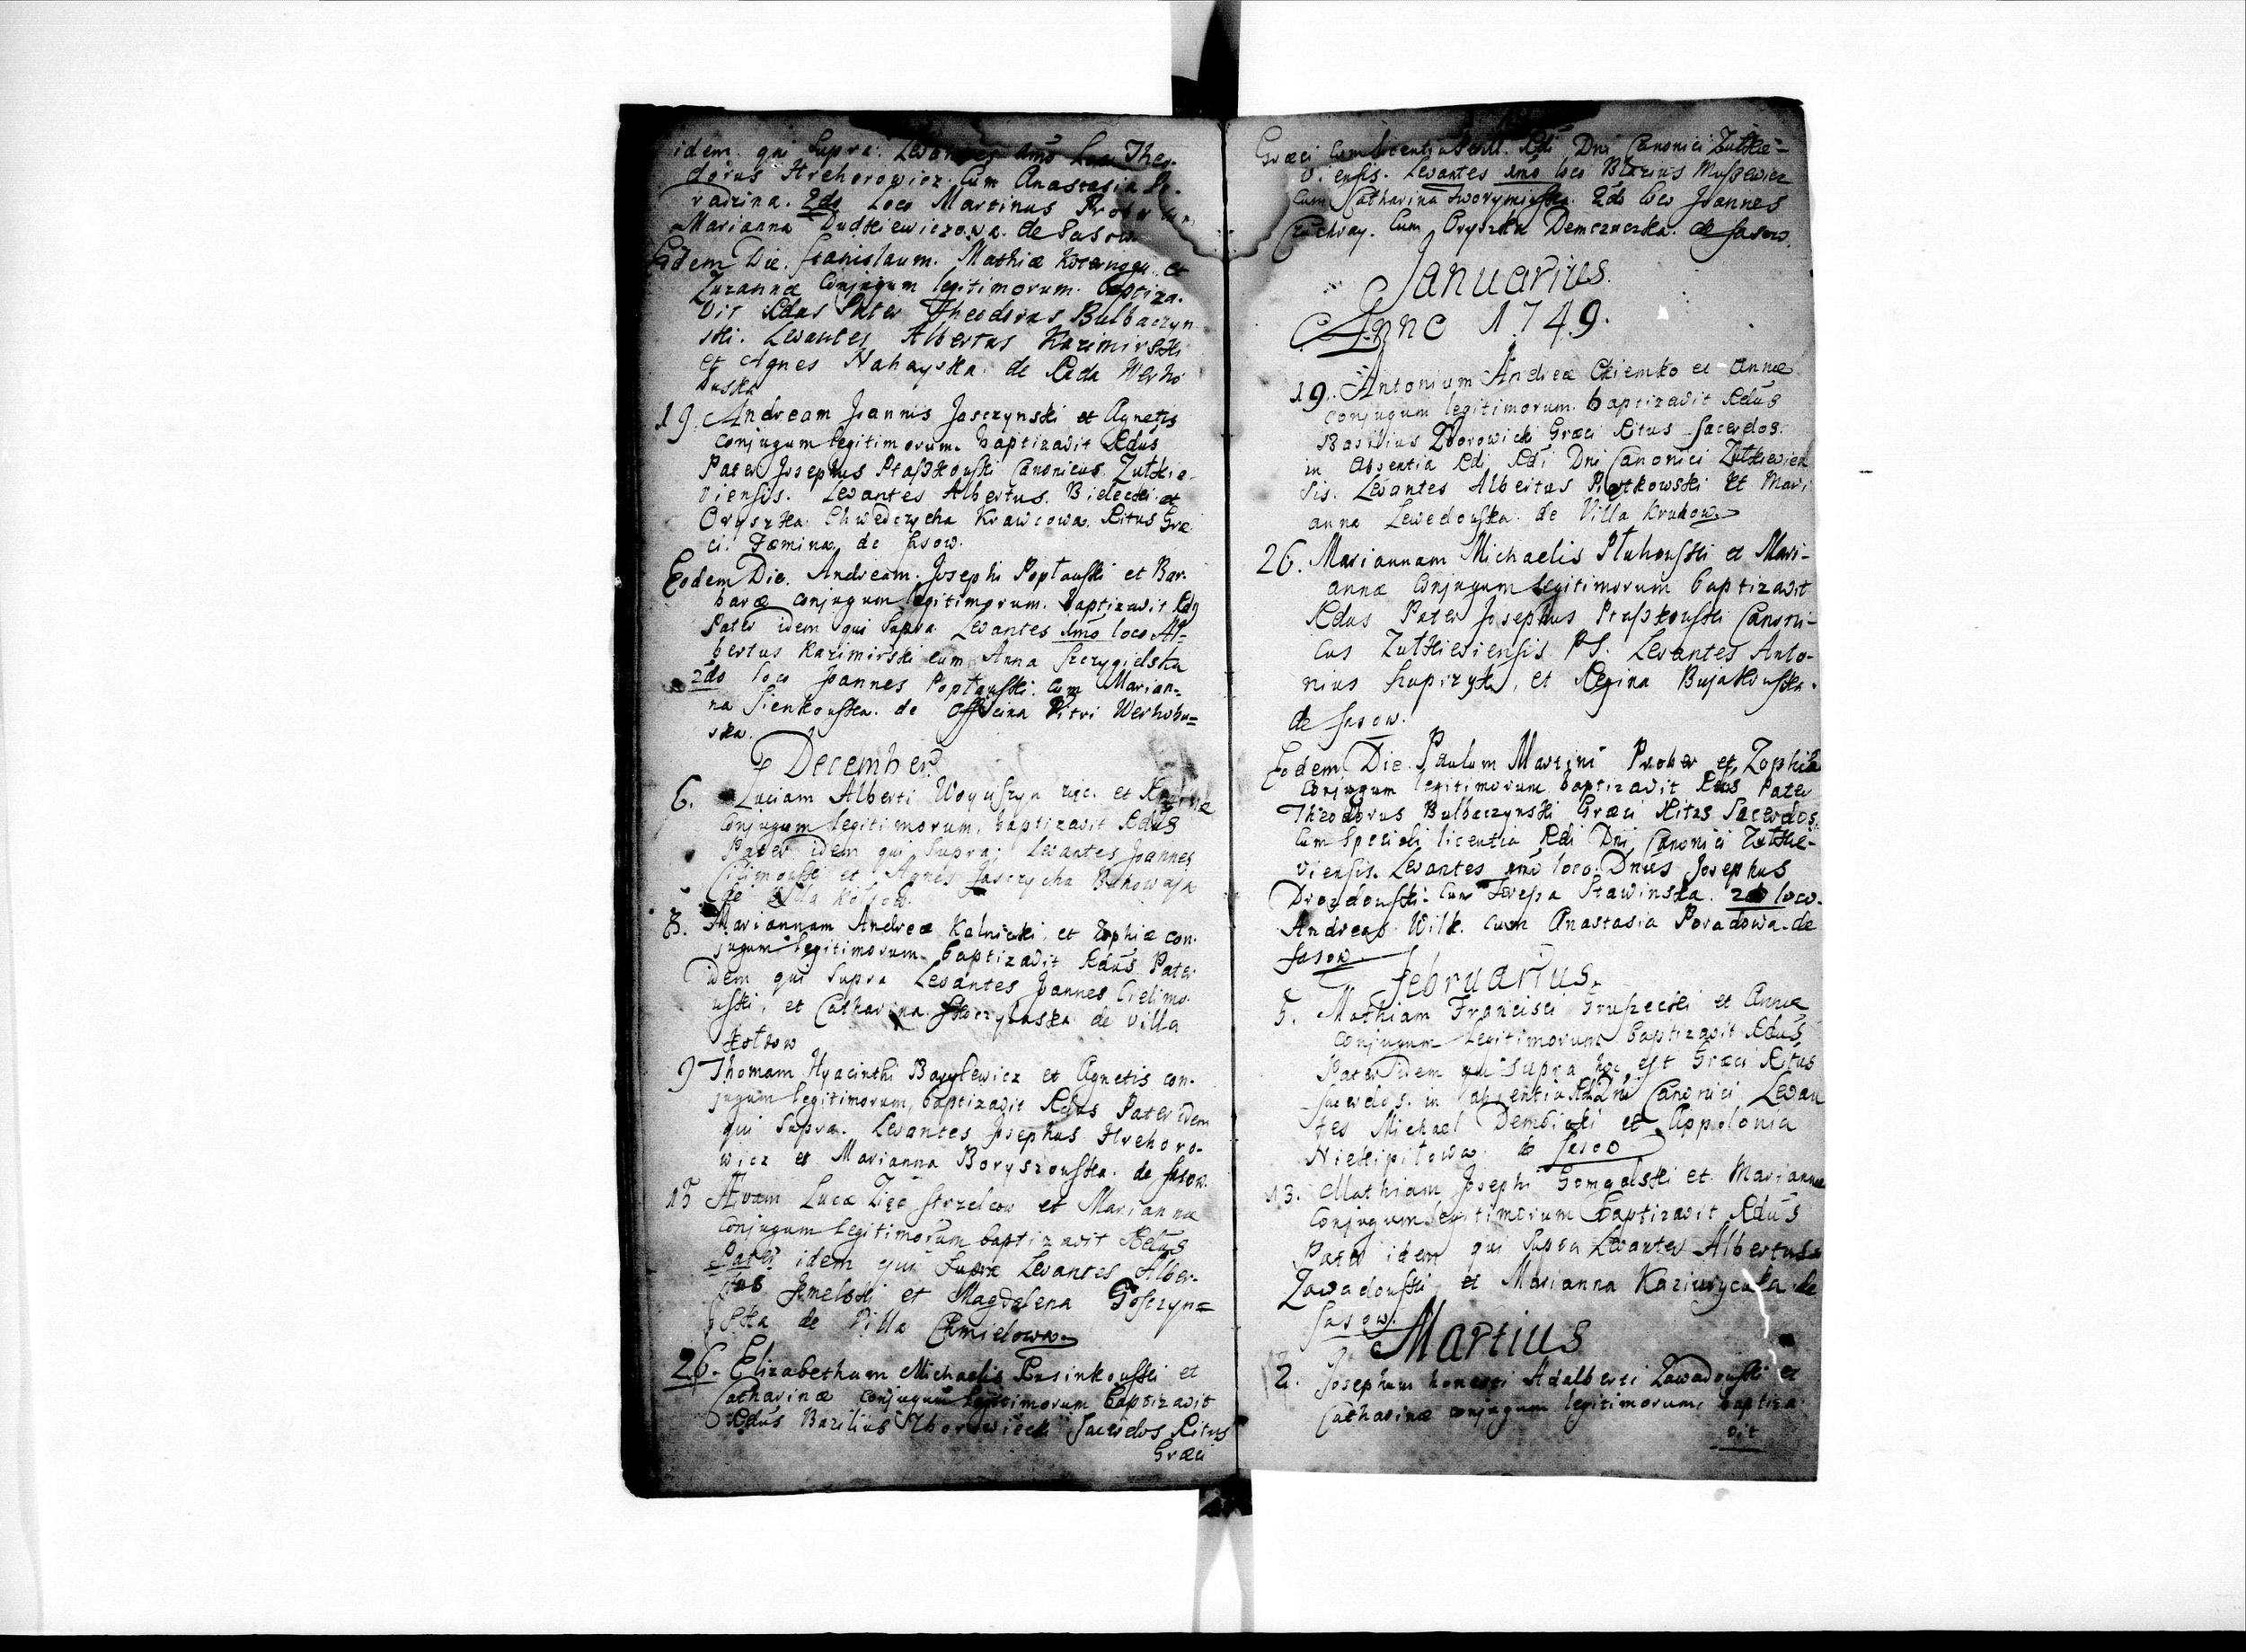 idem qui Supra. Levantes 1mo Loco Theo-
dorus Hrehorowicz Cum Anastasia
radzina. 2do Loco Martinus Prober cum
Marianna Dudkiewiczowa. de Sasow.
Eodem Die. Stanislaum. Mathiæ et
Zuzannæ Conjugum legitimorum. baptiza-
vit Rdus Pater Theodorus Bulbaczyn
ski. Levantes Albertus Kazimirski
et Agnes Nahayska de Ruda Werho
buska
19. Andream Joannis Jasczynski et Agnetis
Conjugum legitimorum. baptizavit Rdus
Pater Josephus Ptaszkouski Canonicus Zułkie-
viensis. Levantes Albertus Bielecki et
Oryszka Chwedczycha Krawcowa. Ritus Græ
ci. Fæmina de Sasow.
Eodem Die. Andream. Josephi Poptauski et Bar-
baræ conjugum legitimorum. baptizavit Rdus
Pater idem qui Supra Levantes 1mo loco Al-
bertus Kazimirski cum Anna Szczygielska
2do loco Joannes Poptauski. cum Marian-
na Sienkouska. de Officina Vitri Werhobu-
ska.
December
6. Luciam Alberti Woyciszyn zięc. et
Conjugum legitimorum, baptizavit Rdus
Pater idem qui Supra; Levantes Joannes
et Agnes Jasczycha Bukowaja
de Villa Kołtow.
8. Mariannam Andreæ Kalnicki, et Zophiæ con-
jugum legitimorum baptizavit Rdus Pater
idem qui Supra Levantes Joannes Cielimo-
uski, et Catharina de Villa
Kołtow
9 Thomam Hyacinthi Bazylewicz et Agnetis con-
jugum legitimorum, baptizavit Rdus Pater idem
qui Supra. Levantes Josephus Hrehoro-
wicz et Marianna Boryszouska. de Sasow.
15 Avam Lucæ Zięć Strzelcow et Mariannæ
Conjugum legitimorum baptizavit Rdus
Pater idem qui Supra Levantes Alber-
tus Jmelski et Magdalena Goszczyn=
ska de Villa Chmielowa
26. Elizabetham Michaelis Rusinkouski et
Catharinæ conjugum legitimorum baptizavit
Rdus Bazilius Zborowiecki Sacerdos Ritus
Græci
Græci cum licentia Rdi Dni Canonici Zułkie-
viensis. Levantes 1mo loco Blazius Muszewicz
Cum Catharina Tworyminska. 2do loco Joannes
Czuchray. Cum Oryszka Demczuczka. de Sasow.
Januarius
Anno 1749.
19. Antonium Andreæ Chiemko et Annæ
conjugum legitimorum. baptizavit Rdus
Basilius Zborowicki Græci Ritus Sacerdos.
in Absentia Rdi Rdi Dni Canonici Zułkievien
sis. Levantes Albertus Piotkowski et Mari
anna Lewedouska. de Villa Krukow.
26. Mariannam Michaelis Pluhouski et Mari-
annæ Conjugum legitimorum baptizavit
Rdus Pater Josephus Ptaszkouski Canoni-
cus Zułkieviensis PS. Levantes Anto-
nius Kuprzyk, et Regina Bujakouska.
de Sasow.
Eodem Die Paulum Martini Prober et Zophiæ
Conjugum legitimorum baptizavit Rdus Pater
Theodorus Bulbaczynski Græci Ritus Sacerdos.
Cum Speciali licentia Rdi Dni Canonici Zułkie-
viensis. Levantes 1mo loco. Dnus Josephus
Drozdouski cum Teresa Stawinska. 2do loco.
Andreas Wilk. cum Anastasia Poradowa. de
Sasow.
Februarius.
5. Mathiam Francisci Gruszecki et Annæ
conjugum legitimorum baptizavit Rdus
Pater idem qui Supra hoc est Græci Ritus
Sacerdos. in absentia Rdi Dni Canonici Levan
tes Michael Dembicki et Appolonia
Niekipiłowa. de Sasow
13. Mathiam Josephi Gomgalski et Mariannæ
Conjugum legitimorum baptizavit Rdus
Pater idem qui Supra Levantes Albertus
Zawadouski et Marianna Kaziurycska de
Sasow.
Martius
12. Josephum honesti Adalberti Zawadouski et
Catharinæ conjugum legitimorum, baptiza
vit